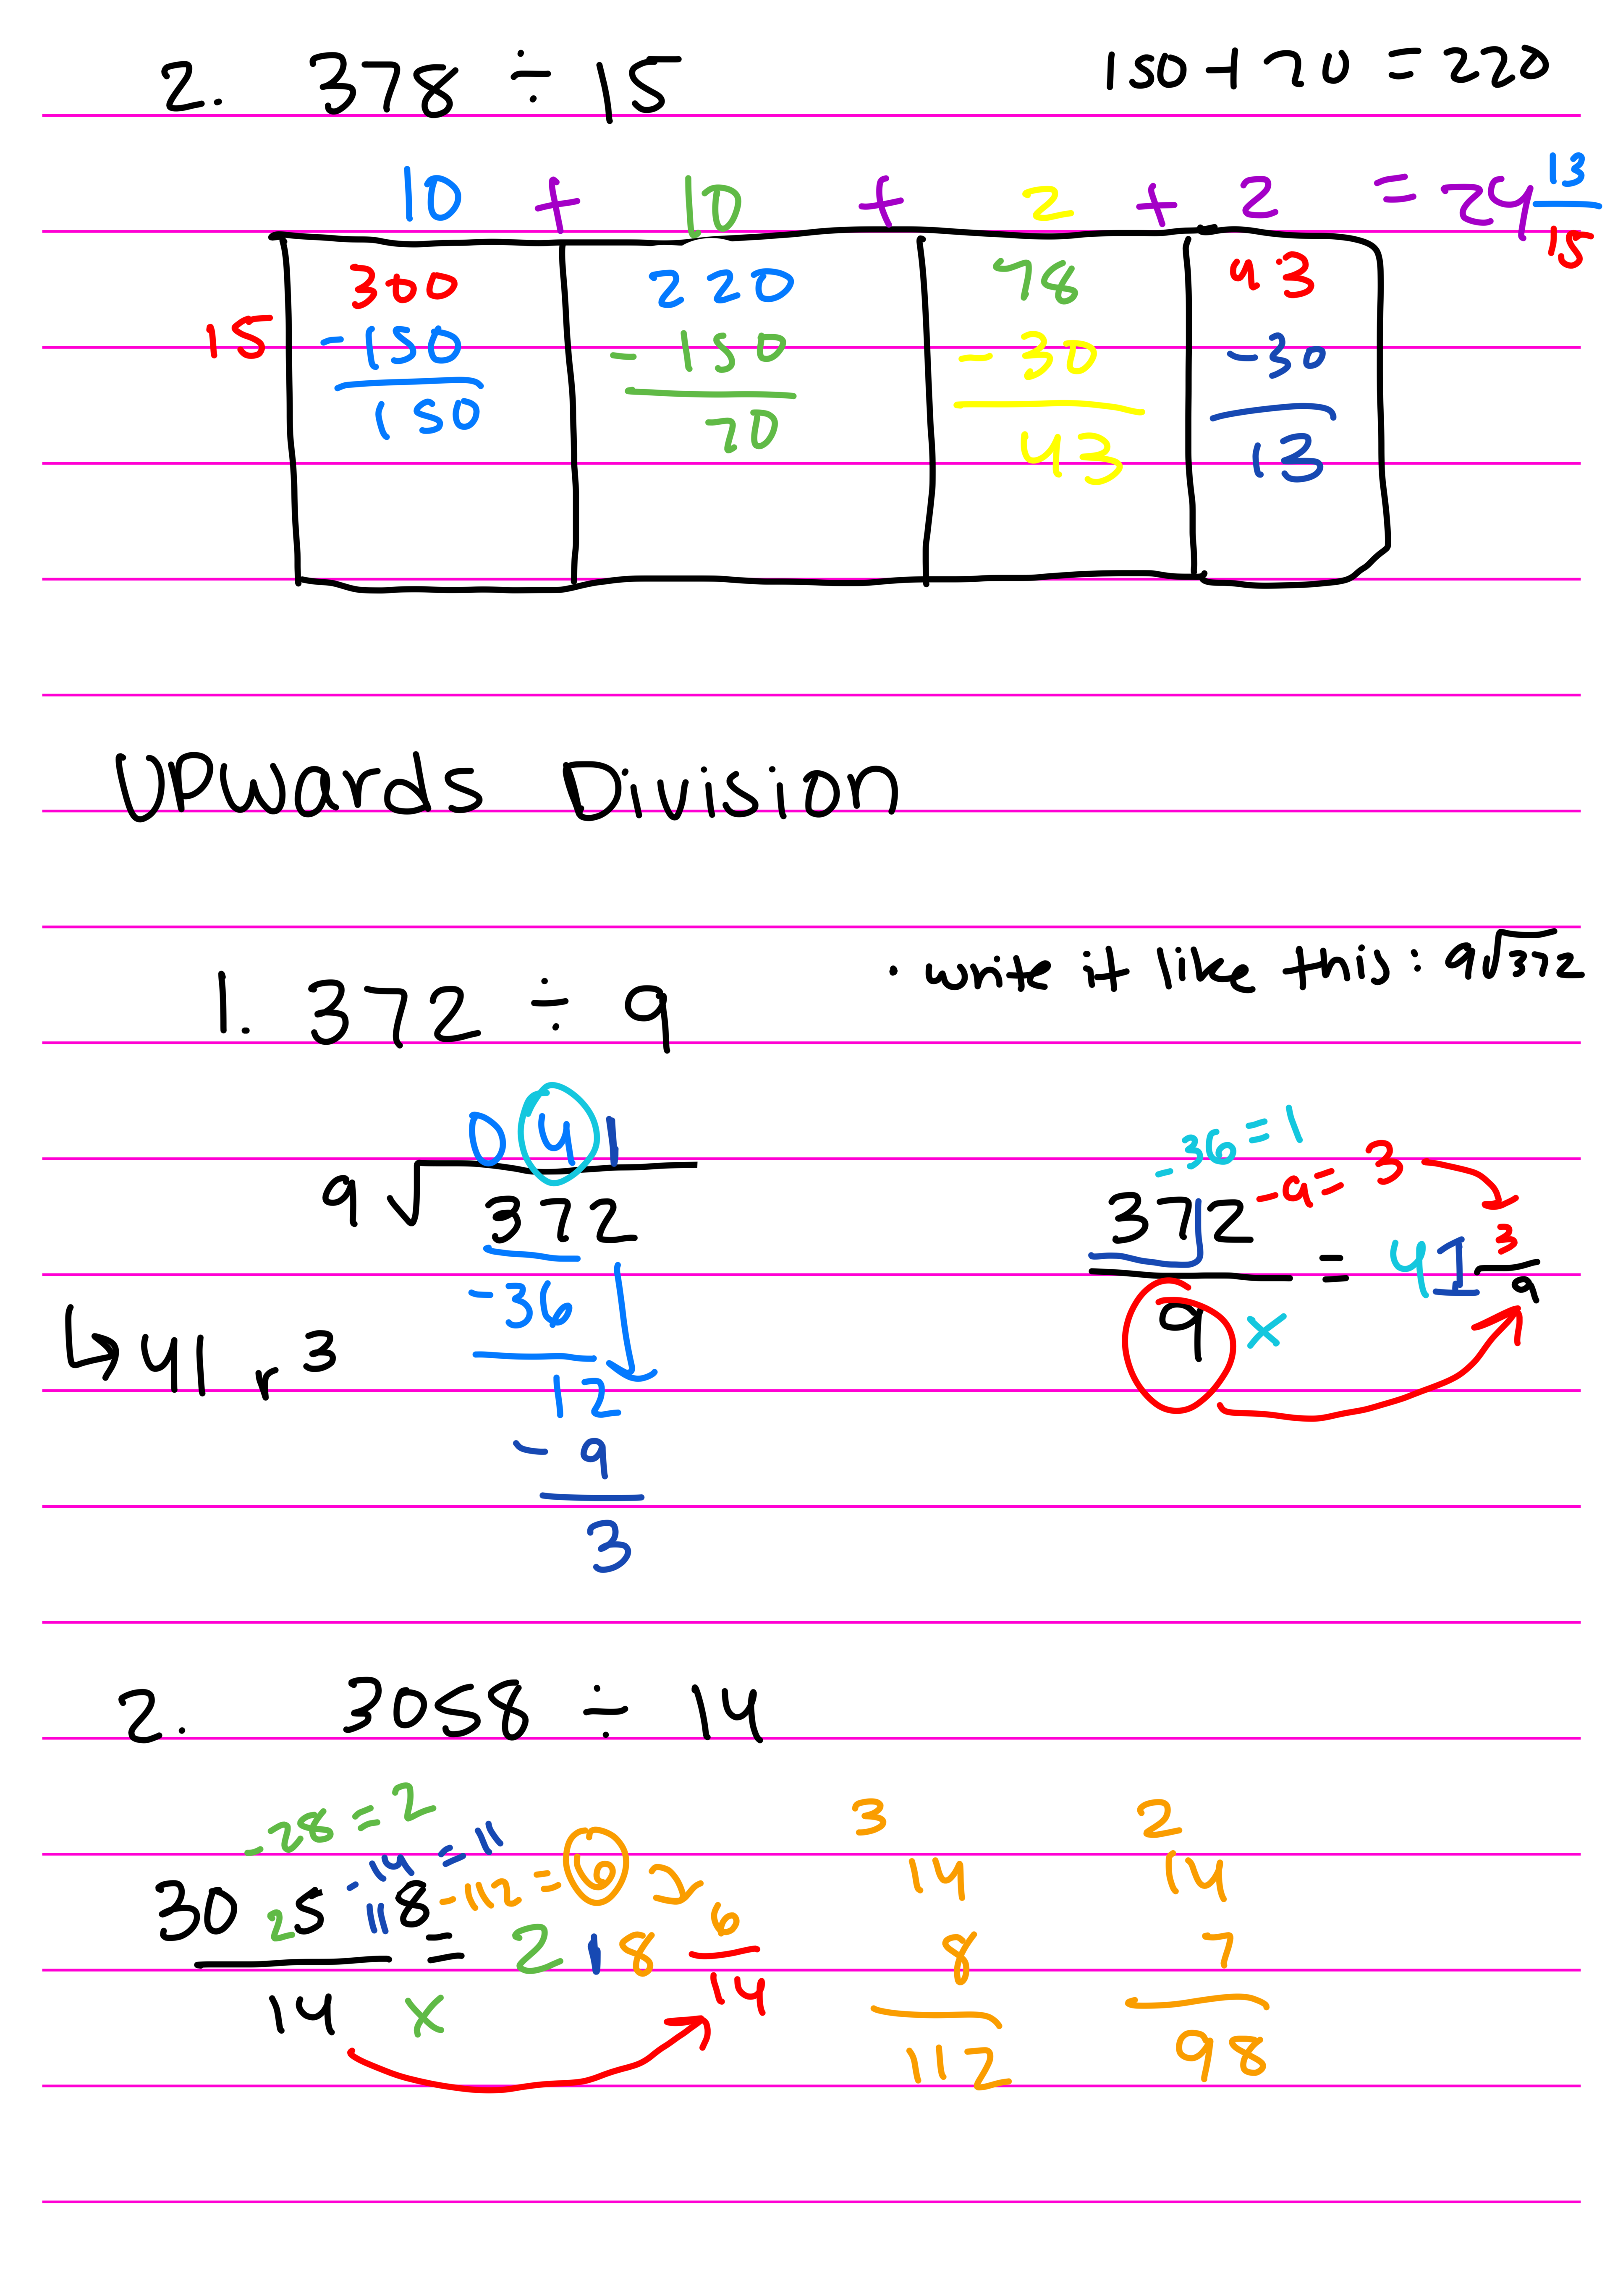 2. 378 ÷ 15
150 + 70 = 220
10 + 10 + 2 + 2 = 24 13/15
15
300 220 78 43
- 150 - 150 - 30 - 30
150 70 43 13
UPwards Division
1. 372 ÷ 9
· write it like this: 9√372
041
9√372
- 36
12
- 9
3
↳ 41 r 3
- 36 = 1
372 - 9 = 3
9 x
= 41 3/9
2. 3058 ÷ 14
- 28 = 2
- 14 = 11
30 25 118 - 112 = 6
14 x
= 218 6/14
3
14
8
112
2
14
7
98